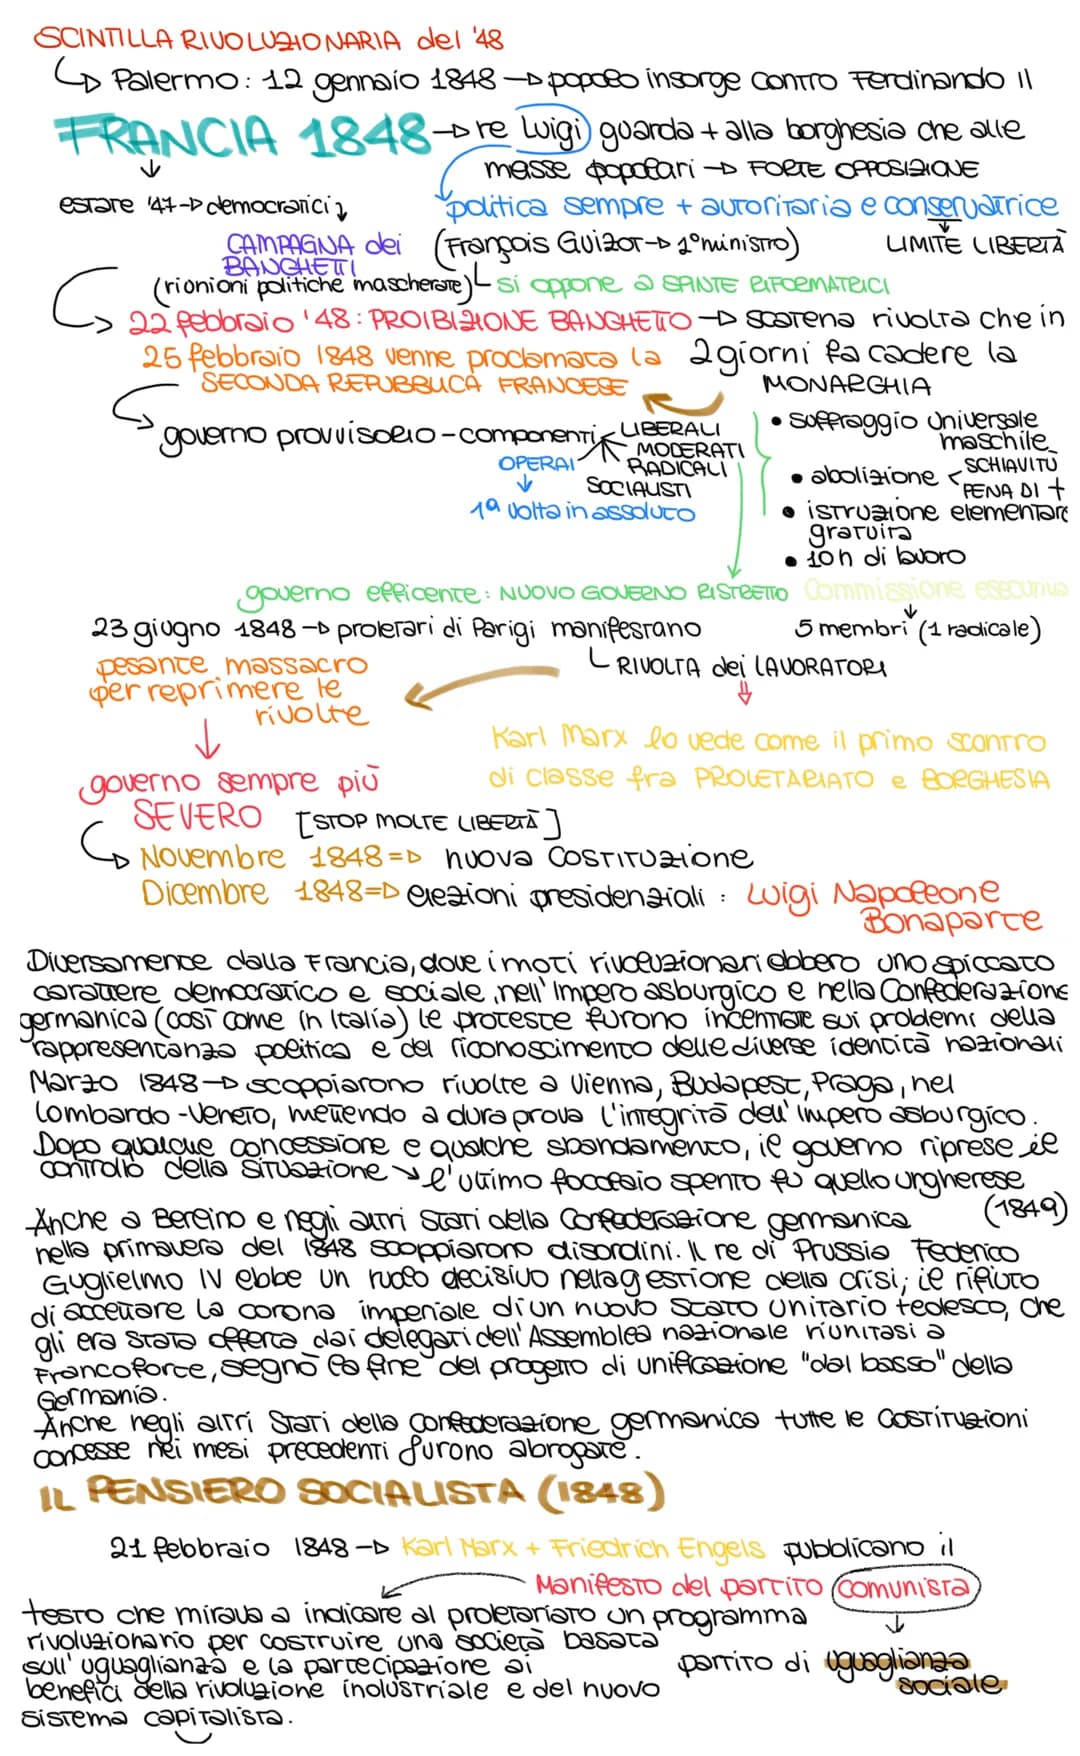 SCINTILLA RIVOLUZIONARIA del '48
↳ Palermo: 12 gennaio 1848 → popolo insorge contro Ferdinando II
FRANCIA 1848 → re Luigi guarda + alla borghesia che alle
masse popolari → FORTE OPPOSIZIONE
estate '47 → democratici
politica sempre + autoritaria e conservatrice
CAMPAGNA dei
BANCHETTI
(François Guizot → 1° ministro)
LIMITE LIBERTÀ
(rionioni politiche mascherate)
si oppone a SPINTE RIFORMATRICI
22 febbraio '48: PROIBIZIONE BANCHETTO → scatena rivolta che in
25 febbraio 1848 venne proclamata la
2 giorni fa cadere la
SECONDA REPUBBLICA FRANCESE
MONARCHIA
governo provvisorio - componenti
LIBERALI
MODERATI
RADICALI
SOCIALISTI
OPERAI
1ª volta in assoluto
• suffraggio universale
maschile
• abolizione < SCHIAVITÙ
PENA DI †
• istruzione elementare
gratuita
• 10h di lavoro
governo efficente: NUOVO GOVERNO RISTRETTO Commissione esecutiva
23 giugno 1848 → proletari di Parigi manifestano
5 membri (1 radicale)
RIVOLTA dei LAVORATORI
pesante massacro
per reprimere le
rivolte
Karl Marx lo vede come il primo scontro
di classe fra PROLETARIATO e BORGHESIA
governo sempre più
SEVERO [STOP MOLTE LIBERTÀ]
↳ Novembre 1848 => nuova COSTITUZIONE
Dicembre 1848 => elezioni presidenziali : Luigi Napoleone
Bonaparte
Diversamente dalla Francia, dove i moti rivoluzionari ebbero uno spiccato
carattere democratico e sociale, nell'Impero asburgico e nella Confederazione
germanica (così come in Italia) le proteste furono incentrate sui problemi della
rappresentanza politica e del riconoscimento delle diverse identità nazionali
Marzo 1848 → scoppiarono rivolte a Vienna, Budapest, Praga, nel
Lombardo-Veneto, mettendo a dura prova l'integrità dell'Impero asburgico.
Dopo qualcue concessione e qualche sbandamento, il governo riprese il
controllo della situazione ↘ l'ultimo focolaio spento fu quello ungherese
(1849)
Anche a Berlino e negli altri Stati della Confederazione germanica
nella primavera del 1848 scoppiarono disordini. Il re di Prussia Federico
Guglielmo IV ebbe un ruolo decisivo nella gestione della crisi; il rifiuto
di accettare la corona imperiale di un nuovo Stato unitario tedesco, che
gli era stata offerta dai delegati dell'Assemblea nazionale riunitasi a
Francoforte, segnò la fine del progetto di unificazione "dal basso" della
Germania.
Anche negli altri Stati della Confederazione germanica tutte le Costituzioni
concesse nei mesi precedenti furono abrogate.
IL PENSIERO SOCIALISTA (1848)
21 febbraio 1848 → Karl Marx + Friedrich Engels pubblicano il
Manifesto del partito comunista
testo che mirava a indicare al proletariato un programma
rivoluzionario per costruire una società basata
sull'uguaglianza e la partecipazione ai
benefici della rivoluzione industriale e del nuovo
sistema capitalista.
partito di uguaglianza
sociale